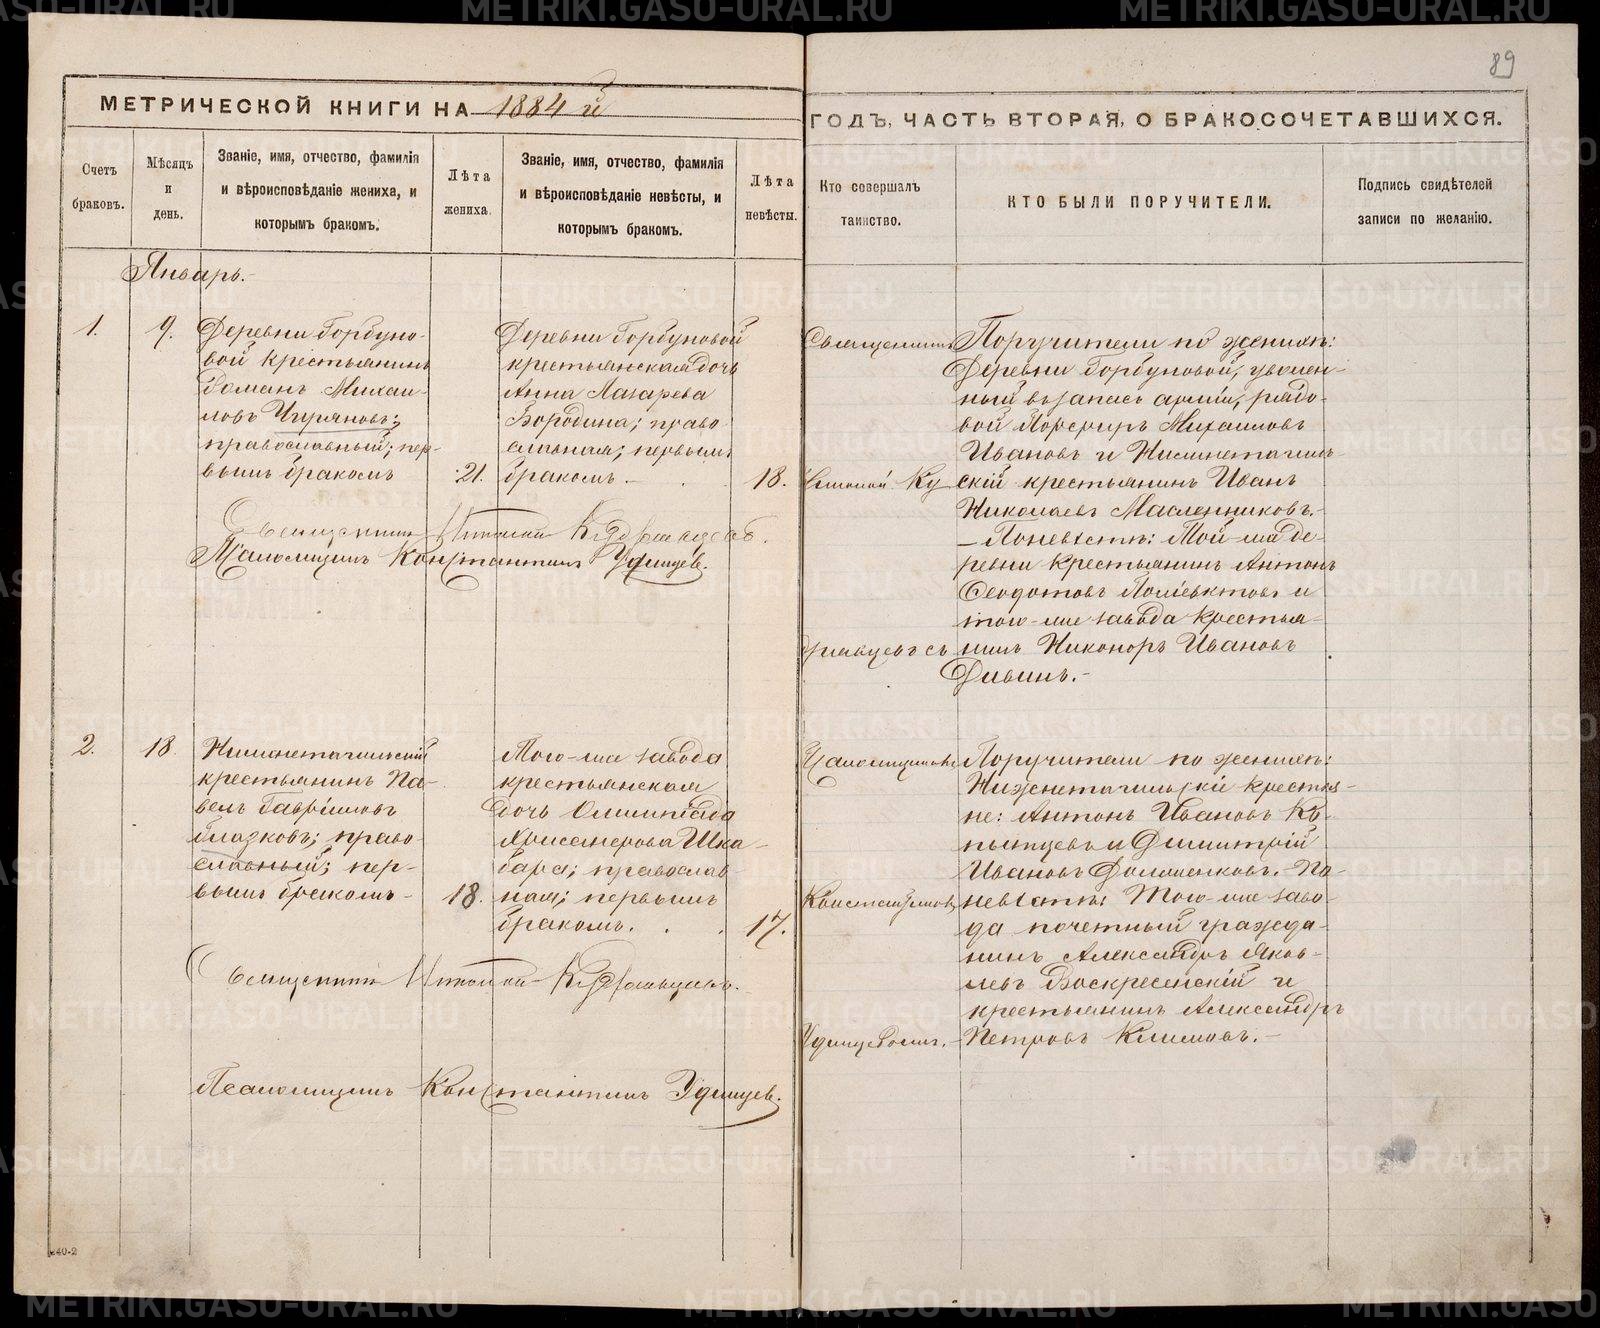 89
МЕТРИЧЕСКОЙ КНИГИ НА 1884 й
ГОДЪ, ЧАСТЬ ВТОРАЯ, О БРАКОСОЧЕТАВШИХСЯ.
Счетъ
браковъ.
Мѣсяцъ
и
день.
Званіе, имя, отчество, фамилія
и вѣроисповѣданіе жениха, и
которымъ бракомъ.
Лѣта
жениха.
Званіе, имя, отчество, фамилія
и вѣроисповѣданіе невѣсты, и
которымъ бракомъ.
Лѣта
невѣсты.
Кто совершалъ
таинство.
КТО БЫЛИ ПОРУЧИТЕЛИ.
Подпись свидѣтелей
записи по желанію.
Январь.-
1.
9.
Деревни Горбуно-
вой крестьянинъ
Романъ Михаи-
ловъ Чирановъ;
православный; пер-
вымъ бракомъ
21.
Деревни Горбуновой
крестьянская дочь
Анна Лазарева
Бородина; право-
славная; первымъ
бракомъ.-
18.
Священникъ
Поручители по женихѣ:
Деревни Горбуновой, уволен-
ный въ запасъ арміи, рядо-
вой Порфиръ Михаиловъ
Ивановъ и Нижнетагиль-
скій крестьянинъ Иванъ
Николаевъ Масленниковъ.-
-По невѣстѣ: Той-же де-
ревни крестьянинъ Антонъ
Ѳеодотовъ Поліевктовъ и
того-же завода крестья-
нинъ Никоноръ Ивановъ
Дивинъ.-
Священникъ
Псаломщикъ Константинъ Удинцев.
2.
18.
Нижнетагильскій
крестьянинъ Па-
велъ Гавріиловъ
Глазковъ; право-
славный; пер-
вымъ бракомъ-
18.
Того-же завода
крестьянская
дочь Олимпіада
бара; православ-
ная; первымъ
бракомъ.
17.
Псаломщикомъ
Константиномъ
Удинцевымъ.-
Поручители по женихѣ:
Нижнетагильскіе крестья-
не: Антонъ Ивановъ Ку-
пытцевъ и Димитрій
Ивановъ Доможековъ.-По
невѣстѣ: Того-же заво-
да почетный гражда-
нинъ Александръ Яков-
левъ Воскресенскій и
крестьянинъ Александръ
Петровъ Климовъ.-
Священникъ
Псаломщикъ Константинъ Удинцев.
240-2
METRIKI.GASO-URAL.RU